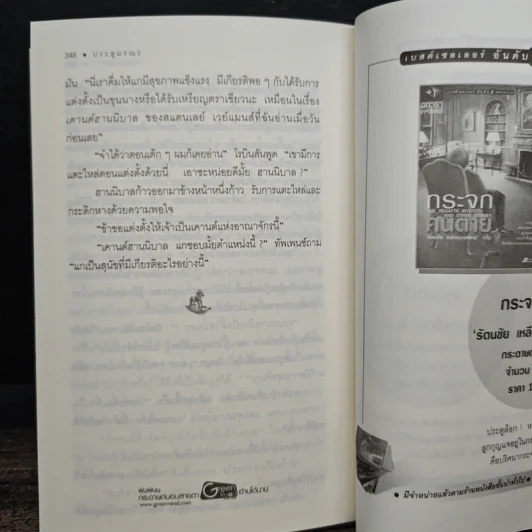 348 ★ ประตูมรณะ
มัน “นี่เราดื่มให้แกมีสุขภาพแข็งแรง มีเกียรติพอ ๆ กับได้รับการ
แต่งตั้งเป็นขุนนางหรือได้รับเหรียญตราเชียวนะ เหมือนในเรื่อง
เคานต์ฮานนิบาล ของสแตนเลย์ เวย์แมนส์ที่ฉันอ่านเมื่อวัน
ก่อนเลย”
“จำได้ว่าตอนเด็ก ๆ ผมก็เคยอ่าน” โรบินสันพูด “เขามีการ
แตะไหล่ตอนแต่งตั้งด้วยนี่ เอาซะหน่อยดีมั้ย ฮานนิบาล?”
ฮานนิบาลก้าวออกมาข้างหน้าหนึ่งก้าว รับการแตะไหล่และ
กระดิกหางด้วยความพอใจ
“ข้าขอแต่งตั้งให้เจ้าเป็นเคานต์แห่งอาณาจักรนี้”
“เคานต์ฮานนิบาล แกชอบมั้ยตำแหน่งนี้?” ทัพเพนซ์ถาม
“แกเป็นสุนัขที่มีเกียรติอะไรอย่างนี้”
พิมพ์บน
กระดาษถนอมสายตา
Green
อ่านได้นาน
www.greenread.com
เบสต์เซลเลอร์ อันดับ
กระจก
คนตาย
กระจ
‘รัตนชัย เหลื
กระดาษ
จำนวน
ราคา 1
ประตูล็อก! ห
ลูกกุญแจอยู่ใน
คือปริศนา
• มีจำหน่ายแล้วตามร้านหนังสือชั้นนำทั่วไป •